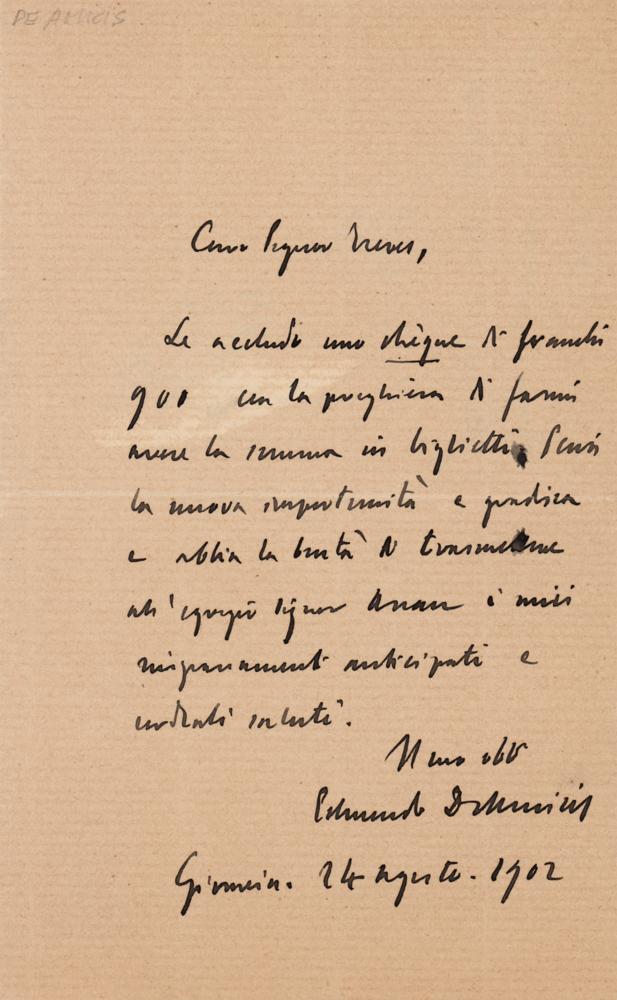 DE AMICIS
Caro Signor Treves,
Le accludo uno chèque di franchi
900 con la preghiera di farmi
avere la somma in biglietti. Scusi
la nuova importunità e gradisca
e abbia la bontà di trasmetterne
all'egregio signor i miei
ringraziamenti anticipati e
cordiali saluti.
Il suo obb
Edmondo De Amicis
24 agosto. 1902